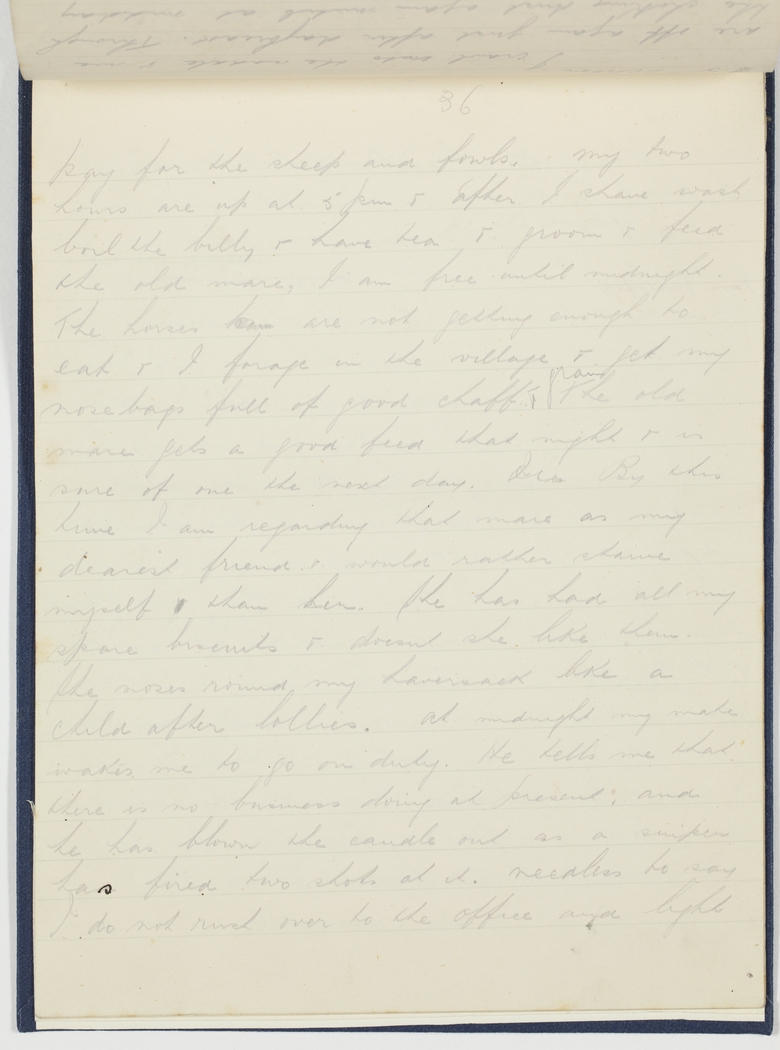 36
pay for the sheep and fowls. my two
hours are up at 5 pm & after I shave wash
boil the billy & have tea & groom & feed
the old mare, I am free until midnight.
The horses are not getting enough to
eat & I forage in the village & get my
grain
nosebags full of good chaff & The old
mare gets a good feed that night & is
sure of one the next day. By this
time I am regarding that mare as my
dearest friend & would rather starve
myself than her. She has had all my
spare biscuits & doesnt she like them.
She noses round my haversack like a
child after lollies. At midnight my mate
wakes me to go on duty. He tells me that
there is no business doing at present; and
he has blown the candle out as a sniper
has fired two shots at it. needless to say
I do not rush over to the office and light